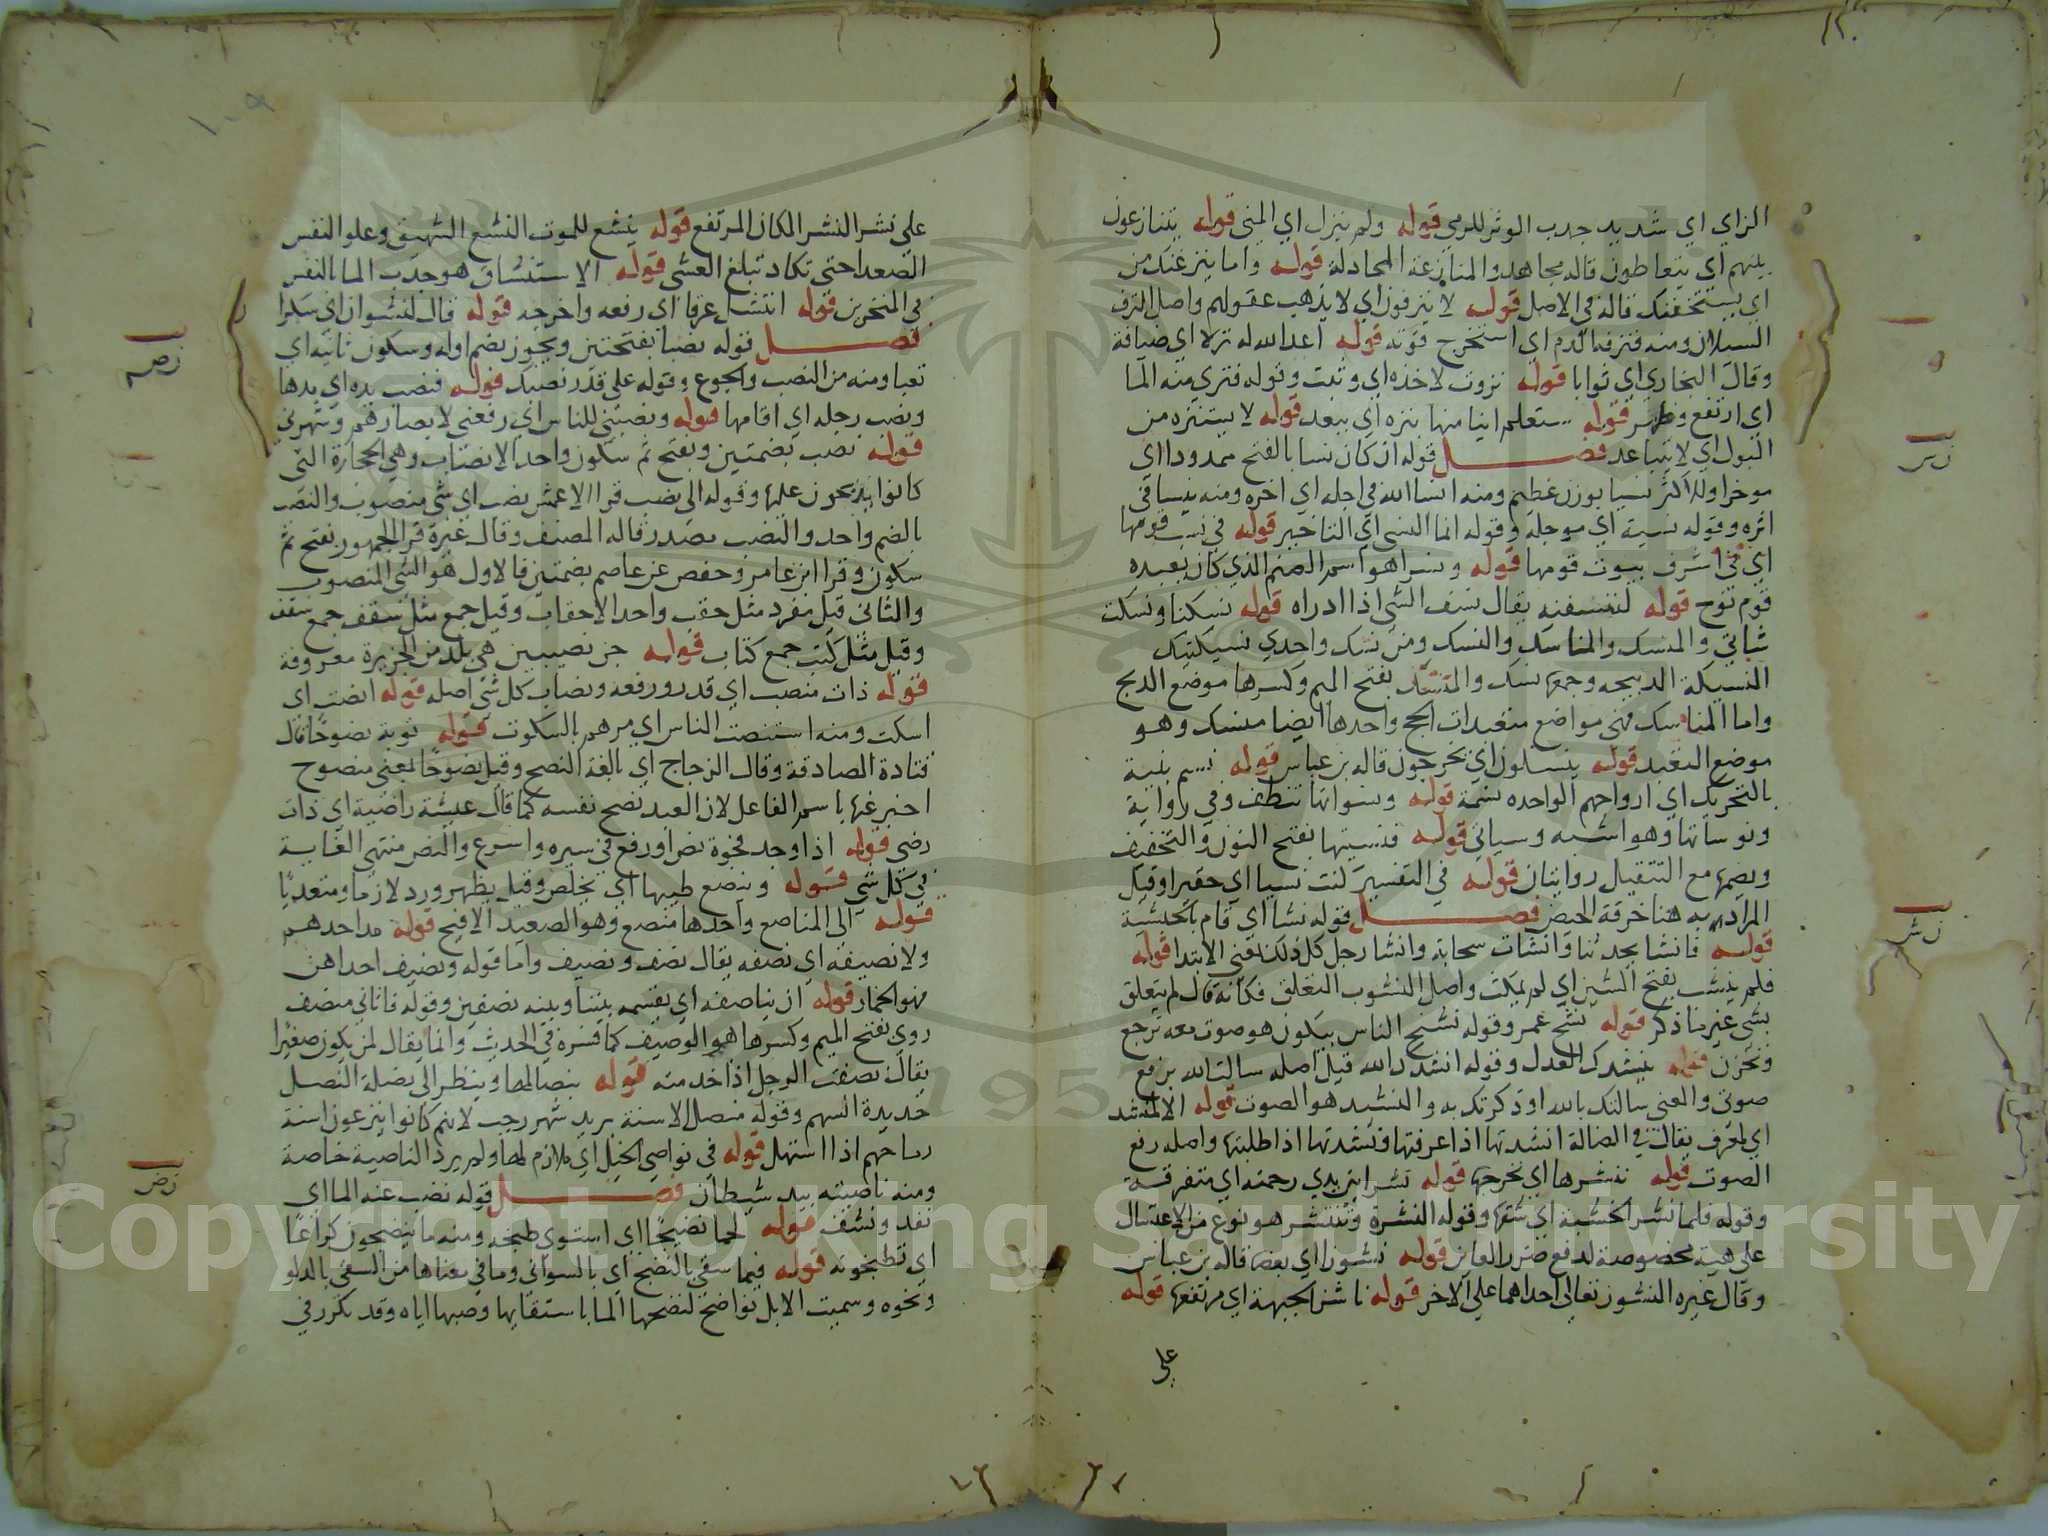 الزاي اي شديد جدب الوتر للرمي قوله ولم ينزل اي المني قوله يتنازعون
بينهم اي يتعاطون قاله مجاهد والمنازعة المجادلة قوله واما ينزغنك من
اي يستخفنك قاله في الاصل قوله لا ينزفون اي لا يذهب عقولهم واصل النزف
السيلان ومنه فنزفه الدم اي استخرج قوته قوله اعد الله له نزلا اي ضيافة
وقال البخاري اي ثوابا قوله نزوت لاخذه اي وثبت وقوله فنزي منه الما
اي ارتفع وظهر قوله ستعلم اينا منها بنزه اي ببعد قوله لا يستنزه من
البول اي لا يتباعد فصل قوله ان كان نسا بالفتح ممدودا اي
موخرا وللاكثر نسيا بوزن عظيم ومنه انسا الله في اجله اي اخره ومنه ينسا في
اثره وقوله نسية اي موجلة وقوله انما النسي اي التاخير قوله في نسب قومها
اي في اشرف بيوت قومها قوله ونسرا هو اسم الصنم الذي كان يعبده
قوم نوح قوله لننسفنه يقال نسف الشي اذا ادراه قوله نسكنا ونسكت
شاتي والمنسك والمناسك والنسك ومن نسك واحدي نسيكتيك
النسيكة الدبيحه وجمعها نسك والمنسك بفتح الميم وكسرها موضع الدبح
واما المناسك فهي مواضع متعبدات الحج واحدها ايضا منسك وهو
موضع التعبد قوله ينسلون اي يخرجون قاله بن عباس قوله نسم بنيه
بالتحريك اي ارواحهم الواحده نسمة قوله ونسواتها تنطف وفي رواية
ونوساتها وهو اشبه وسياتي قوله فنسيتها بفتح النون والتخفيف
وبضمها مع التثقيل روايتان قوله في التفسير كنت نسيا اي حقيرا وقيل
المراد به هنا خرقة الحيض فصل قوله نشا اي قام بالحبشية
قوله فانشا يحدثنا وانشات سحابة وانشا رجل كل ذلك بمعني الابتدا قوله
فلم ينشب بفتح الشين اي لم يمكث واصل النشوب التعلق فكانه قال لم يتعلق
بشي غير ما ذكر قوله نشج عمر وقوله نشج الناس يبكون هو صوت معه ترجع
وتحزن قوله ينشدك العدل وقوله انشدك الله قيل اصله سالت الله برفع
صوتي والمعني سالتك بالله او ذكرتك به والنشيد هو الصوت قوله الا لمنشد
اي لمعرف يقال في الضالة انشدتها اذا عرفتها ونشدتها اذا طلبتها واصله رفع
الصوت قوله ننشرها اي نخرجها قوله نشرا بين يدي رحمته اي متفرقة
وقوله فلما نشر الخشبة اي شقها وقوله النشرة وتنتشر هو نوع من الاغتسال
علي هيية مخصوصة لدفع ضرر العاين قوله نشوزا اي بغضا قاله بن عباس
وقال غيره النشوز تعالي احداهما علي الاخر قوله ناشز الجبهة اي مرتفعها قوله
علي
نس
نش
علي نشز النشز المكان المرتفع قوله ينشغ للموت النشغ الشهيق وعلو النفس
الصعدا حتي تكاد تبلغ الغشي قوله الاستنشاق هو جدب الما بالنفس
في المنخرين قوله انتشل عرقا اي رفعه واخرجه قوله قال لنشوان اي سكرا
فصل قوله نصبا بفتحتين ويجوز بضم اوله وسكون ثانيه اي
تعبا ومنه من النصب والجوع وقوله علي قدر نصبك قوله فنصب يده اي يدها
ونصب رجله اي اقامها قوله ونصبني للناس اي رفعني لابصارهم وشهرني
قوله نصب بضمتين وبفتح ثم سكون واحد الانصاب وهي الحجارة التي
كانوا يذبحون عليها وقوله الي نصب قرا الاعمش نصب اي شي منصوب والنصب
بالضم واحد والنصب مصدر قاله المصنف وقال غيره قرا الجمهور بفتح ثم
سكون وقرا ابن عامر وحفص عن عاصم بضمتين فالاول هو الشي المنصوب
والثاني قيل مفرد مثل حقب واحد الاحقاب وقيل جمع مثل سقف جمع سقف
وقيل مثل كتب جمع كتاب قوله جن نصيبين هي بلد من الجزيرة معروفة
قوله ذات منصب اي قدر ورفعه ونصاب كل شي اصله قوله انصت اي
اسكت ومنه استنصت الناس اي مرهم بالسكوت قوله توبة نصوحا قال
قتادة الصادقة وقال الزجاج اي بالغة النصح وقيل نصوحا بمعني منصوح
اخبر عنها باسم الفاعل لان العبد نصح نفسه كما قال عيشة راضية اي ذات
رضي قوله اذا وجد فجوة نص او رفع في سيره واسرع والنص منتهي الغاية
في كل شي قوله وينصع طيبها اي يخلص وقيل يظهر ورد لازما ومتعديا
قوله الي المناصع واحدها منصع وهو الصعيد الافيح قوله مد احدهم
ولا نصيفه اي نصفه يقال نصف ونصيف واما قوله ونصيف احداهن
فهو الخمار قوله ان يناصفه اي يقسمه بيننا وبينه نصفين وقوله فاتاني منصف
روي بفتح الميم وكسرها هو الوصيف كما فسره في الحديث وانما يقال لمن يكون صغيرا
يقال نصفت الرجل اذا خدمته قوله بنصالها وينظر الي نصله النصل
حديدة السهم وقوله منصل الاسنة يريد شهر رجب لانهم كانوا ينزعون اسنة
رماحهم اذا استهل قوله في نواصي الخيل اي ملازم لها ولم يرد الناصية خاصة
ومنه ناصيته بيد شيطان فصل قوله نضب عنه الما اي
نفد ونشف قوله لحما نضيجا اي استوي طبخه ومنه ما ينضجون كراعا
اي تطبخونه قوله فيما سقي بالنضح اي بالسواني وما في معناها من السقي بالدلو
ونحوه وسميت الابل نواضح لنضحها الما باستقايها وصبها اياه وقد تكرر في
نص
نض
Copyright © King Saud University
195